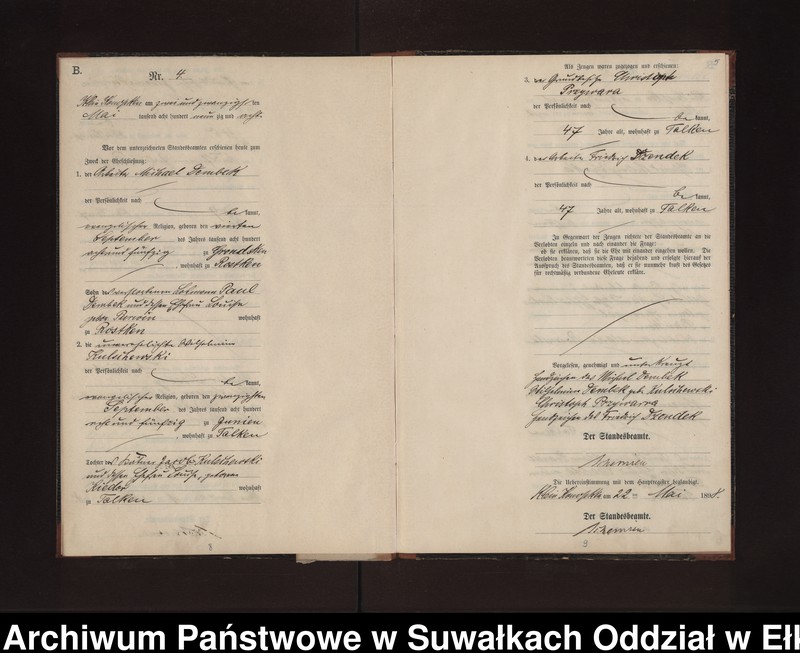 B.
Nr. 4
Klein Konopken am zwei und zwanzigsten
Mai tausend acht hundert neunzig und acht.
Vor dem unterzeichneten Standesbeamten erschienen heute zum
Zweck der Eheschließung:
1. der Arbeiter Michael Dembek
der Persönlichkeit nach
be kannt,
evangelischer Religion, geboren den vierten
September des Jahres tausend acht hundert
achtundfünfzig zu
, wohnhaft zu Rostken
Sohn des verstorbenen Losmann Paul
Dembek und dessen Ehefrau Louise
geborene wohnhaft
zu Rostken
2. die unverehelichte Wilhelmine
Kulschewski
der Persönlichkeit nach
be kannt,
evangelischer Religion, geboren den zwanzigsten
September des Jahres tausend acht hundert
acht und fünfzig zu
, wohnhaft zu Talken
Tochter des Jacob Kulschewski
und dessen Ehefrau Louise, geborene
wohnhaft
zu Talken
8
Als Zeugen waren zugezogen und erschienen:
3. der Christoph
Przywara
der Persönlichkeit nach
be kannt,
47 Jahre alt, wohnhaft zu Talken
4. der Arbeiter Friedrich Dzendek
der Persönlichkeit nach
be kannt,
47 Jahre alt, wohnhaft zu Talken
In Gegenwart der Zeugen richtete der Standesbeamte an die
Verlobten einzeln und nach einander die Frage:
ob sie erklären, daß sie die Ehe mit einander eingehen wollen. Die
Verlobten beantworteten diese Frage bejahend und erfolgte hierauf der
Ausspruch des Standesbeamten, daß er sie nunmehr kraft des Gesetzes
für rechtmäßig verbundene Eheleute erkläre.
Vorgelesen, genehmigt und unterkreuzt
Handzeichen des Michael Dembek
Wilhelmine Dembek geb. Kulschewski
Christoph Przywarra
Handzeichen des Friedrich Dzendek
Der Standesbeamte.
Die Uebereinstimmung mit dem Hauptregister beglaubigt.
Klein Konopken am 22ten Mai 1898.
Der Standesbeamte.
9
Archiwum Państwowe w Suwałkach Oddział w Ełk